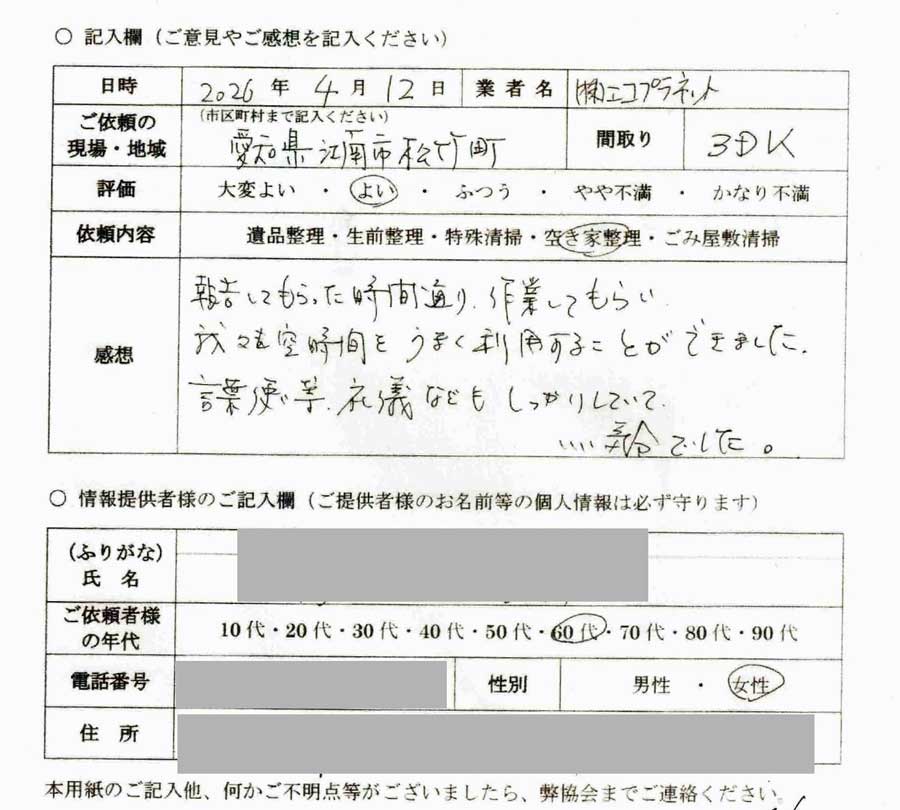 ○ 記入欄（ご意見やご感想を記入ください）
日時 2026 年 4 月 12 日 業者名 ㈱エコプラネット
ご依頼の現場・地域 （市区町村まで記入ください） 愛知県江南市松竹町 間取り 3DK
評価 大変よい ・ よい ・ ふつう ・ やや不満 ・ かなり不満
依頼内容 遺品整理・生前整理・特殊清掃・空き家整理・ごみ屋敷清掃
感想
報告してもらった時間通り、作業してもらい
我々も空時間をうまく利用することができました、
言葉使い等、礼儀などもしっかりしていて、
いい 業者でした。
○ 情報提供者様のご記入欄（ご提供者様のお名前等の個人情報は必ず守ります）
（ふりがな）
氏 名
ご依頼者様の年代 10代・20代・30代・40代・50代・60代・70代・80代・90代
電話番号 性別 男性 ・ 女性
住 所
本用紙のご記入他、何かご不明点等がございましたら、弊協会までご連絡ください。